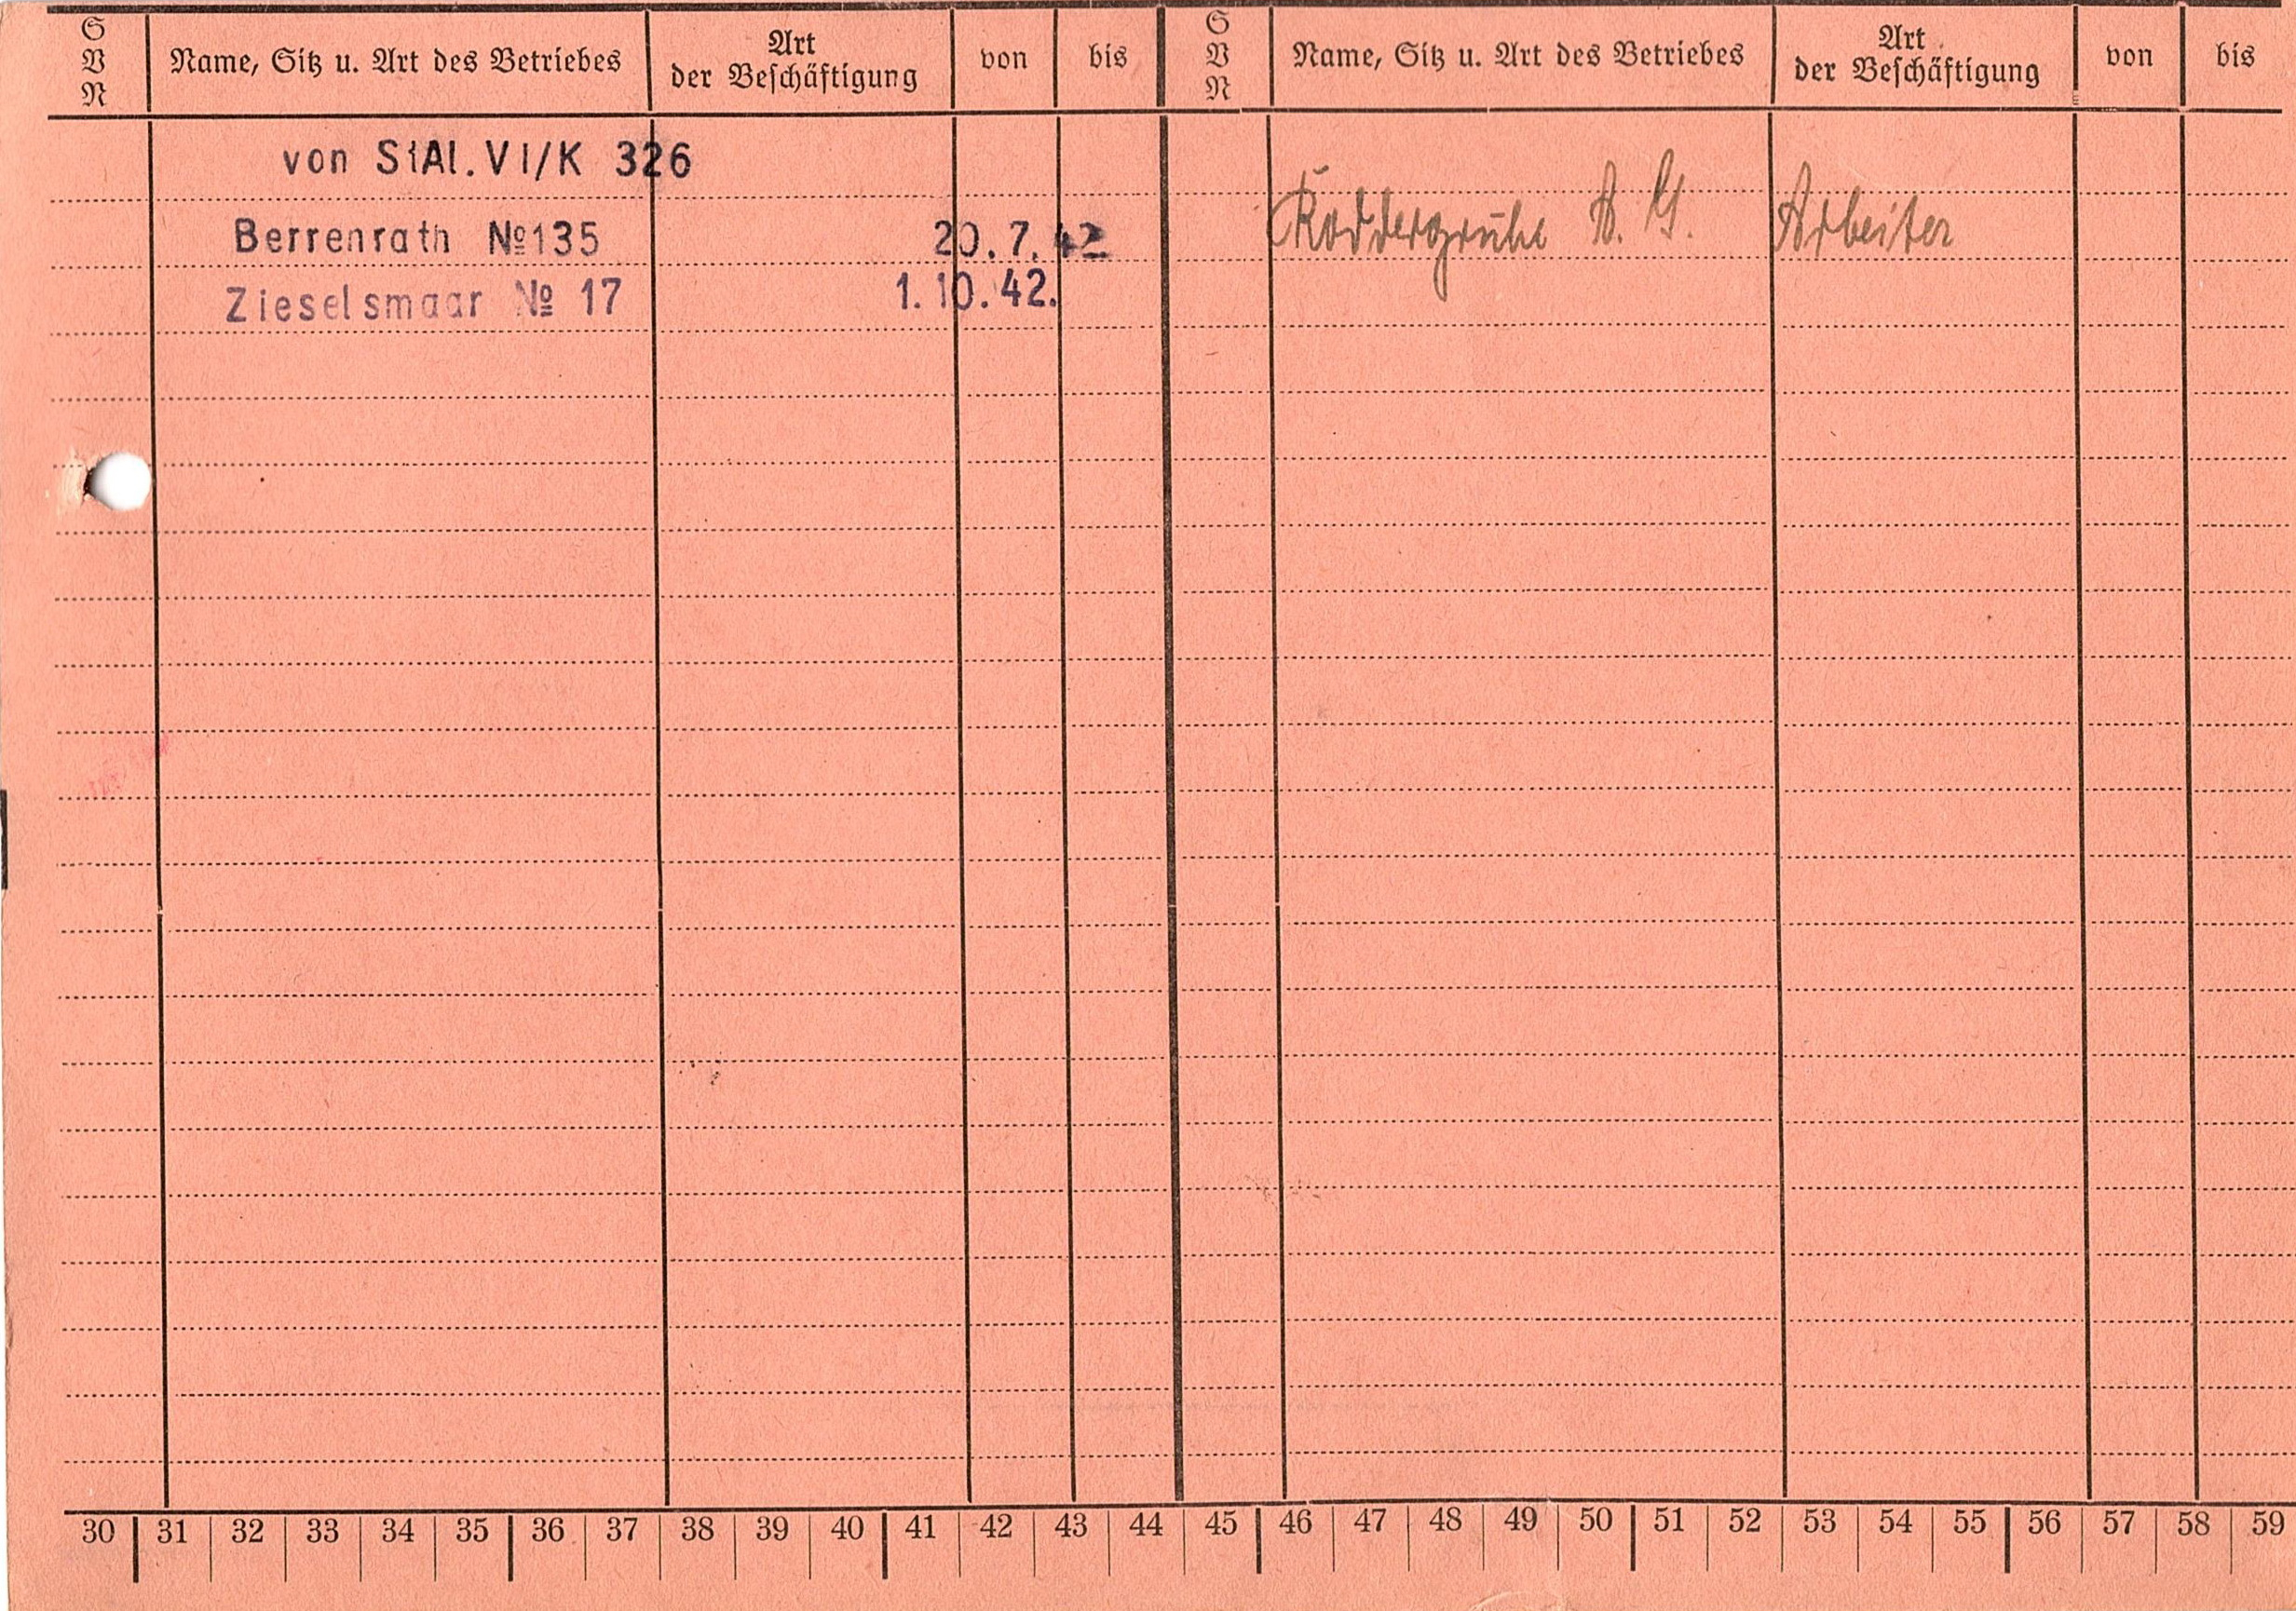 S V N Name, Sitz u. Art des Betriebes Art der Beschäftigung von bis S V N Name, Sitz u. Art des Betriebes Art der Beschäftigung von bis
von StAl. VI/K 326
Berrenrath № 135 20. 7. 42
Zieselsmaar № 17 1. 10. 42.
Roddergrube A. G. Arbeiter
30 31 32 33 34 35 36 37 38 39 40 41 42 43 44 45 46 47 48 49 50 51 52 53 54 55 56 57 58 59